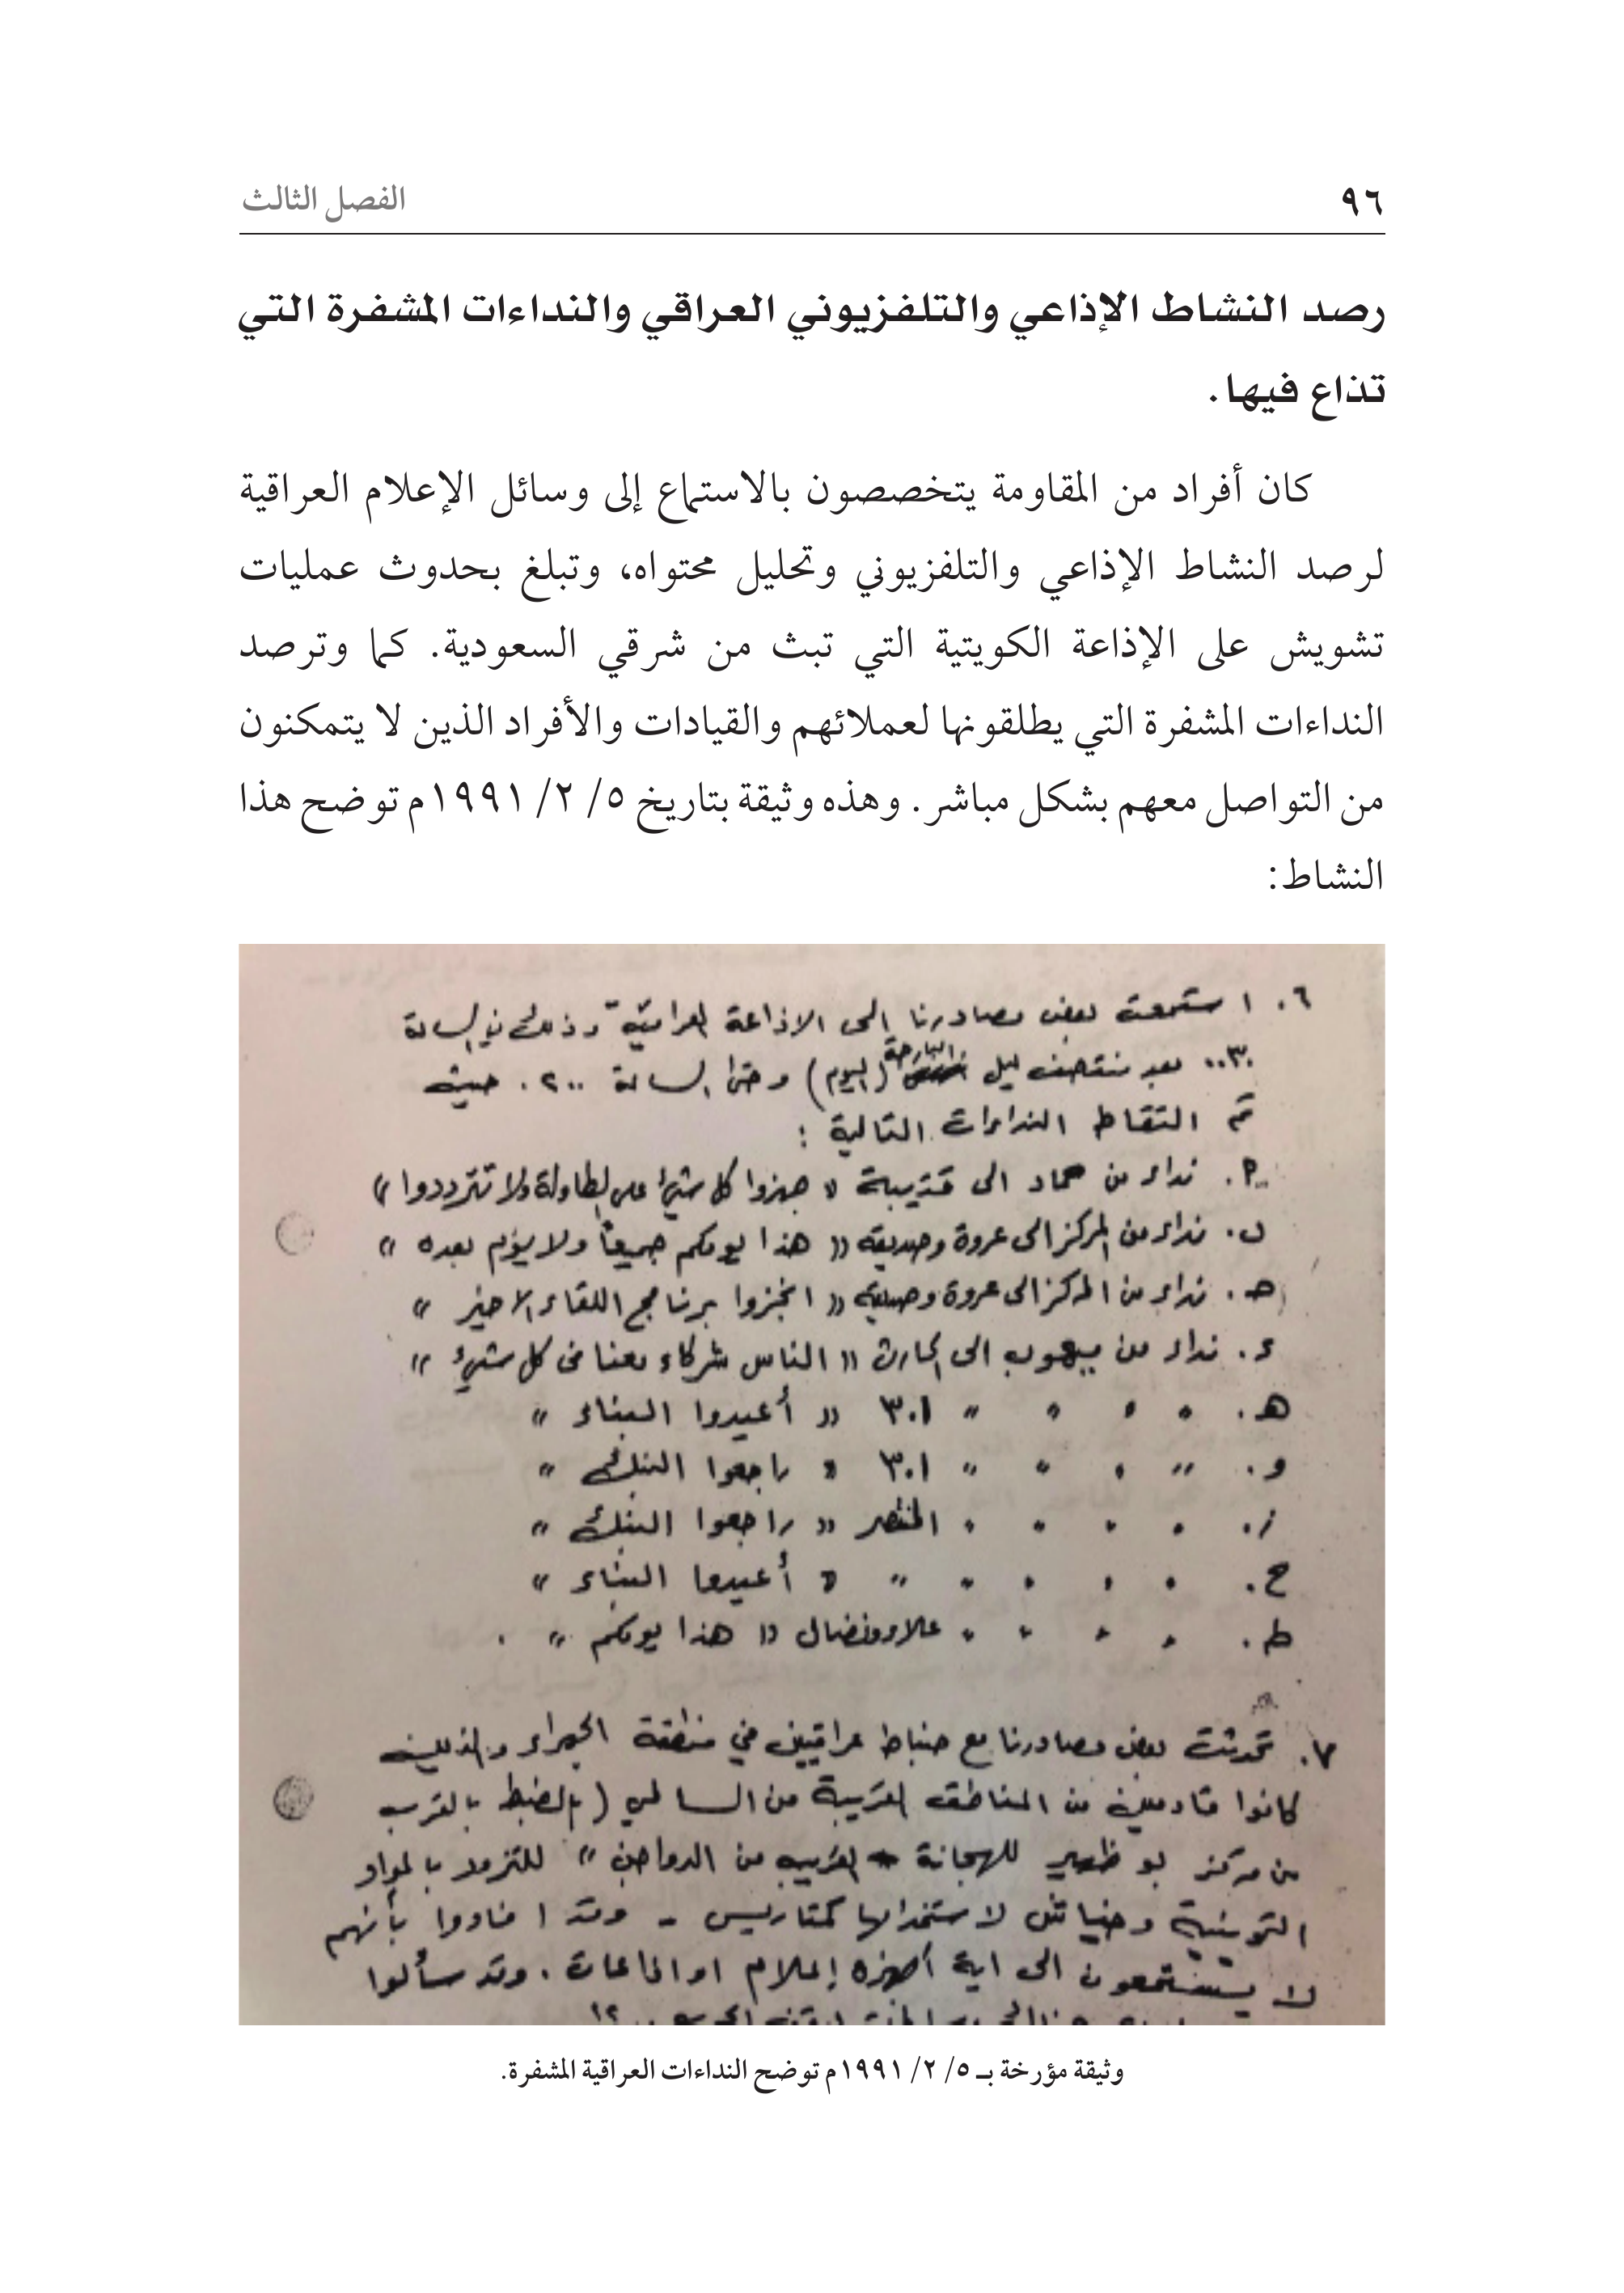 ٩٦
الفصل الثالث
رصد النشاط الإذاعي والتلفزيوني العراقي والنداءات المشفرة التي
تذاع فيها.
كان أفراد من المقاومة يتخصصون بالاستماع إلى وسائل الإعلام العراقية
لرصد النشاط الإذاعي والتلفزيوني وتحليل محتواه، وتبلغ بحدوث عمليات
تشويش على الإذاعة الكويتية التي تبث من شرقي السعودية. كما وترصد
النداءات المشفرة التي يطلقونها لعملائهم والقيادات والأفراد الذين لا يتمكنون
من التواصل معهم بشكل مباشر. وهذه وثيقة بتاريخ ٥/ ٢/ ١٩٩١م توضح هذا
النشاط:
٦. استمعت بعض مصادرنا الى الاذاعة العراقية وذلك في الساعة
٠٠٣٠ بعد منتصف ليل البارحة (اليوم) وحتى الساعة ٠٢٠٠ حيث
تم التقاط النداءات التالية :
نداء من حماد الى قتيبة « جهزوا كل شيء على الطاولة ولا تترددوا »
ب. نداء من المركز الى عروة وصديقه « هذا يومكم جميعاً ولا يوم بعده »
جـ. نداء من المركز الى عروة وصديقه « انجزوا برنامج اللقاء الاخير »
د. نداء من الى الحارث « الناس شركاء معنا في كل شيء »
هـ. " " " " ٣٠١ « أعيدوا البناء »
و. " " " " ٣٠١ « راجعوا البنك »
ز. " " " " المنتصر « راجعوا البنك »
ح. " " " " " « أعيدوا البناء »
ط. " " " " علاء ونضال « هذا يومكم » .
٧. تحدثت بعض مصادرنا مع ضباط عراقيين في منطقة الجهراء والذين
كانوا قادمين من المناطق القريبة من السالمي (بالضبط بالقرب
من مركز بو ظهير للهجانة القريب من الدواجن » للتزود بالمواد
التموينية لاستخدامها كمتاريس - وقد افادوا بأنهم
لا يستمعون الى اية أجهزه إعلام او اذاعات . وقد سألوا
وثيقة مؤرخة بـ ٥/ ٢/ ١٩٩١م توضح النداءات العراقية المشفرة.